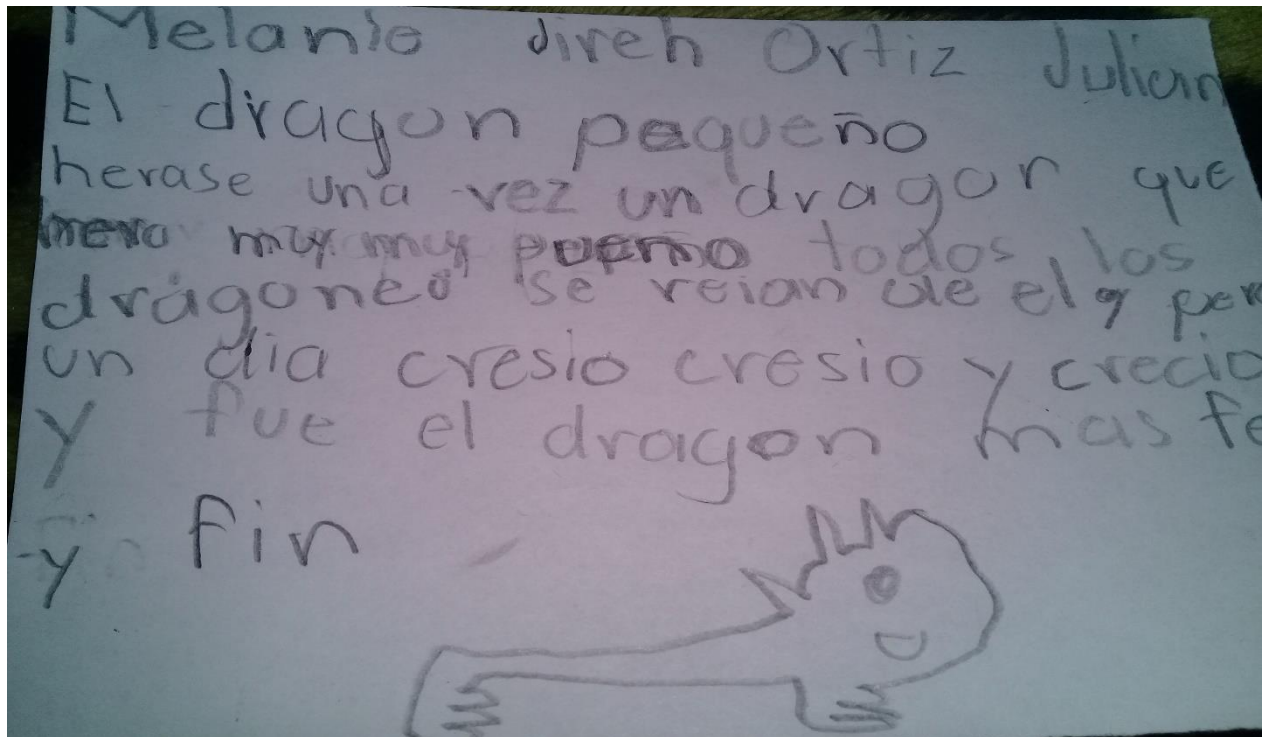 Melanie direh Ortiz Julian
El dragon pequeño
herase una vez un dragon que
muy muy todos los
dragones se reian de el y per
un dia cresio cresio y crecio
y fue el dragon mas fe
y fin